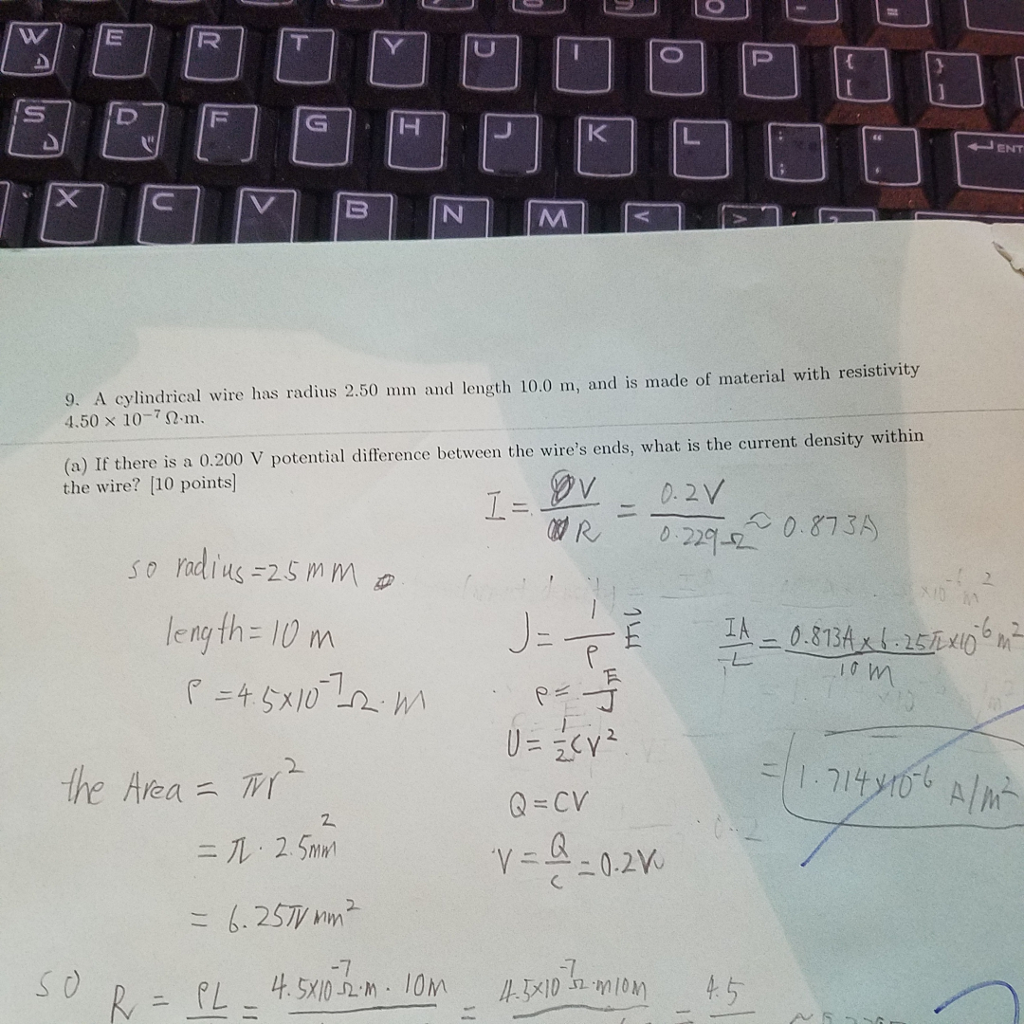 W E R T Y U I O P { [ } ]
S D F G H J K L : ; " ' ENT
X C V B N M < > ?
9. A cylindrical wire has radius 2.50 mm and length 10.0 m, and is made of material with resistivity
4.50 × 10⁻⁷ Ω·m.
(a) If there is a 0.200 V potential difference between the wire's ends, what is the current density within
the wire? [10 points]
I = V/R = 0.2V/0.229Ω ≈ 0.873A
so radius = 2.5 mm
length = 10 m
ρ = 4.5×10⁻⁷ Ω·m
the Area = πr²
= π · 2.5mm²
= 6.25π mm²
J = 1/ρ E⃗
ρ = E/J
U = 1/2 CV²
Q = CV
V = Q/C = 0.2V
IA/L = 0.873A × 6.25π×10⁻⁶ m²/10 m
= 1.714×10⁻⁶ A/m²
so R = ρL = 4.5×10⁻⁷ Ω·m · 10m = 4.5×10⁻⁷ Ω·m 10m = 4.5